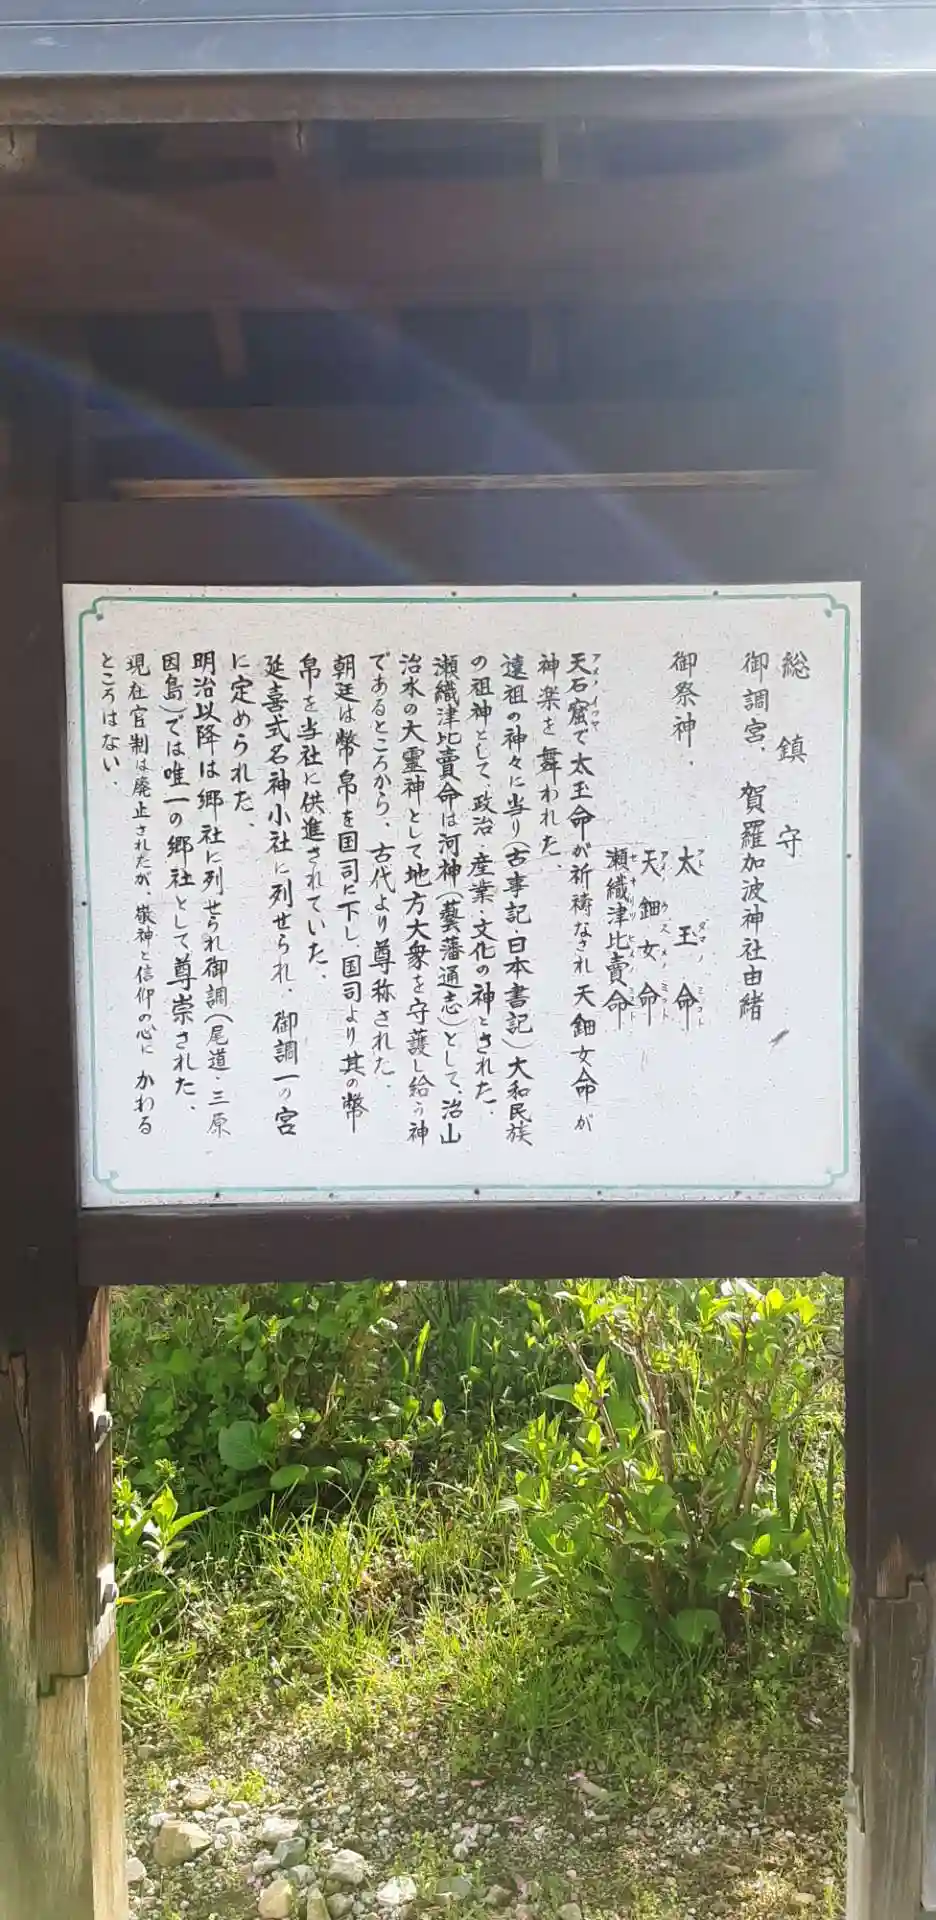 総鎮守
御調宮、賀羅加波神社由緒
御祭神、
太玉命
天鈿女命
瀬織津比賣命
天石窟で太玉命が祈祷なされ天鈿女命が
神楽を舞われた、
遠祖の神々に当り(古事記・日本書記)大和民族
の祖神として、政治・産業・文化の神とされた、
瀬織津比賣命は河神(藝藩通志)として、治山
治水の大霊神として地方大衆を守護し給う神
であるところから、古代より尊称された、
朝廷は幣帛を国司に下し、国司より其の幣
帛を当社に供進されていた、
延喜式名神小社に列せられ、御調一の宮
に定められた、
明治以降は郷社に列せられ御調(尾道・三原
因島)では唯一の郷社として尊崇された、
現在官制は廃止されたが、敬神と信仰の心に かわる
ところはない、